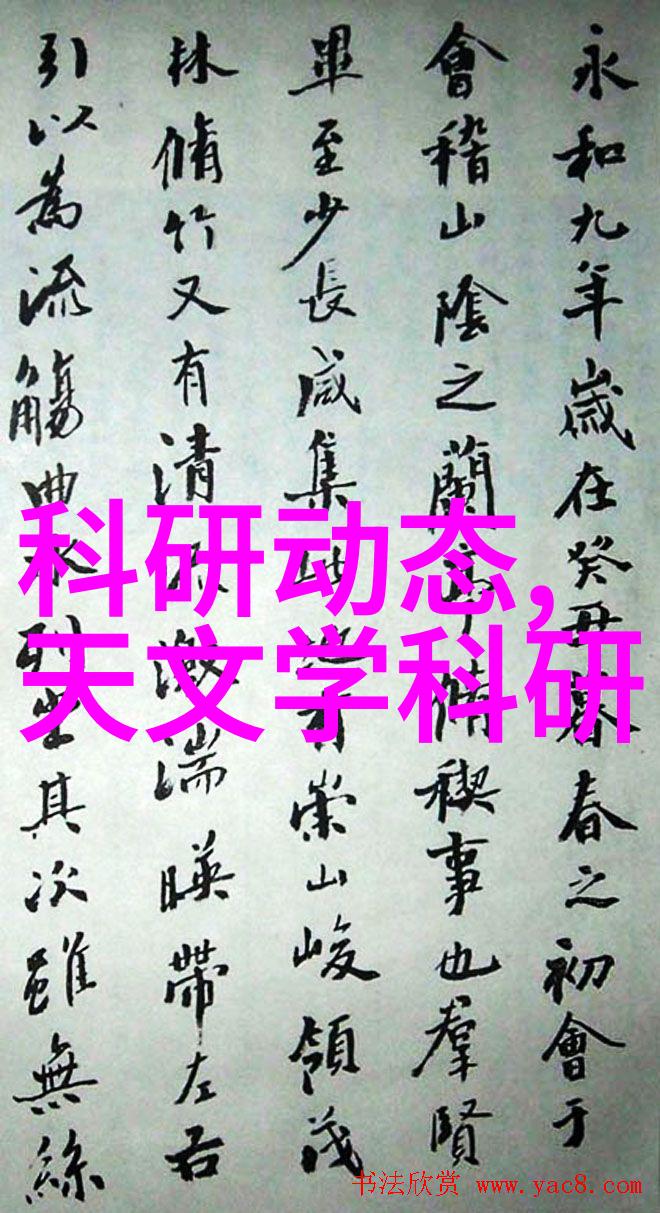 永和九年歲在癸丑暮春之初會于
會稽山陰之蘭亭脩稧事也羣賢
畢至少長咸集此地有崇山峻領茂
林脩竹又有清流激湍暎帶左右
引以為流觴曲水列坐其次雖無絲
科研动态,
天文学科研
书法欣赏 www.yac8.com